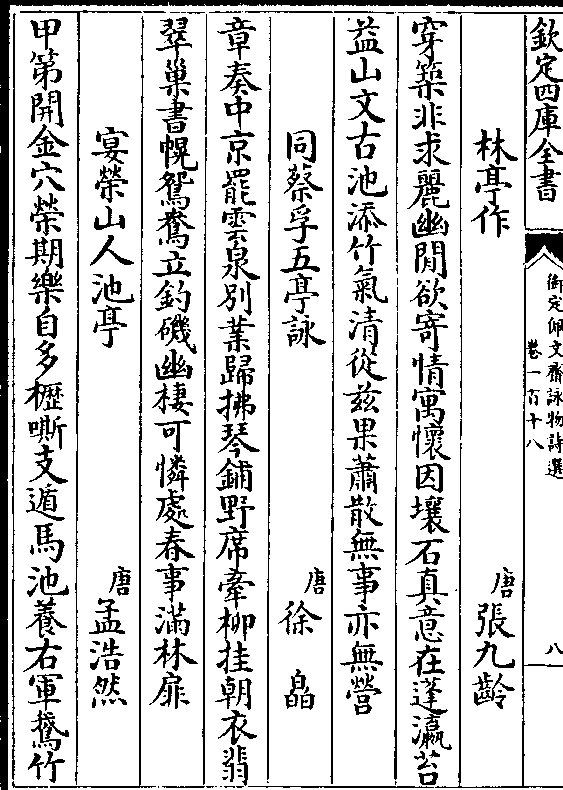 欽定四庫全書
御定佩文齋詠物詩選
卷一百十八
八
林亭作
唐張九齡
穿築非求麗幽閒欲寄情寓懷因壤石真意在蓬瀛苔
益山文古池添竹氣清從茲果蕭散無事亦無營
同蔡孚五亭詠
唐徐皛
章奏中京罷雲泉別業歸拂琴鋪野席牽柳挂朝衣翡
翠巢書幌鴛鴦立釣磯幽棲可憐處春事滿林扉
宴榮山人池亭
唐孟浩然
甲第開金穴榮期樂自多櫪嘶支遁馬池養右軍鵞竹